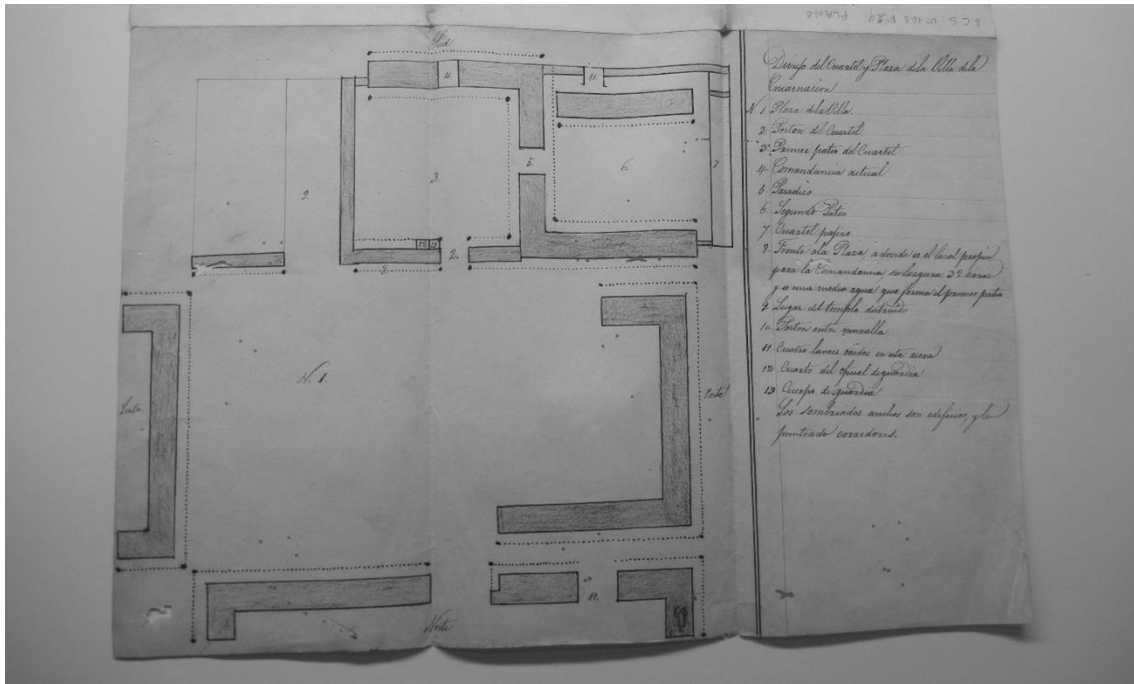 Sud
11
11.
9
3.
5.
6.
7
12
13
2.
8.
N. 1.
Este
Oeste
11.
Norte
del Cuartel y Plaza de la Villa de la
Encarnacion
N. 1. Plaza de la Villa.
2. Porton del Cuartel
3. Primer patio del Cuartel
4. Comandancia actual
5. Paradico
6. Segundo Patio
7. Cuartel
8. Frente a la Plaza, a donde es el local propio
para la Comandancia, su largura 32 varas
y es una media agua que forma el primer patio
9. Lugar del templo destruido
10. Porton entre muralla
11. Cuatro lances caidos en esta acera
12. Cuarto del oficial de guardia
13. Cuerpo de guardia
Los sombriados anchos son edificios, y lo
punteado corredores.